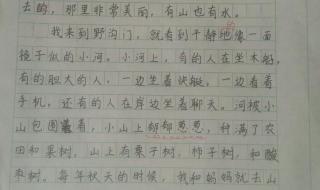 去的，那里非常美丽，有山也有水。
我来到野沟门，就看到干静地像一面
的
镜子似的小河。小河上，有的人在坐木船，
有的胆大的人，一边坐着快艇，一边看着
手机，还有的人在岸边坐着聊天。河被小
山包围着，小山上郁郁葱葱，种满了农
田和果树。山上有栗子树，柿子树，和酸
枣树。每年秋天的时候，我和妈妈就去山